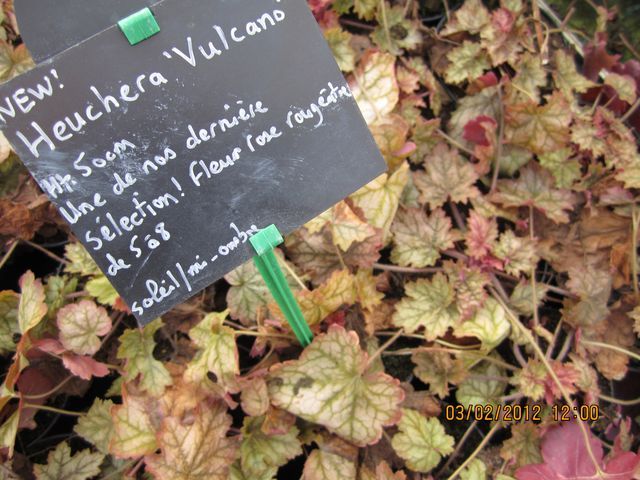 NEW!
Heuchera 'Vulcano'
Ht. 50cm
Une de nos dernière
sélection! Fleur rose rougeâtre
de 5 à 8
soleil/mi-ombre
03/02/2012 12:00